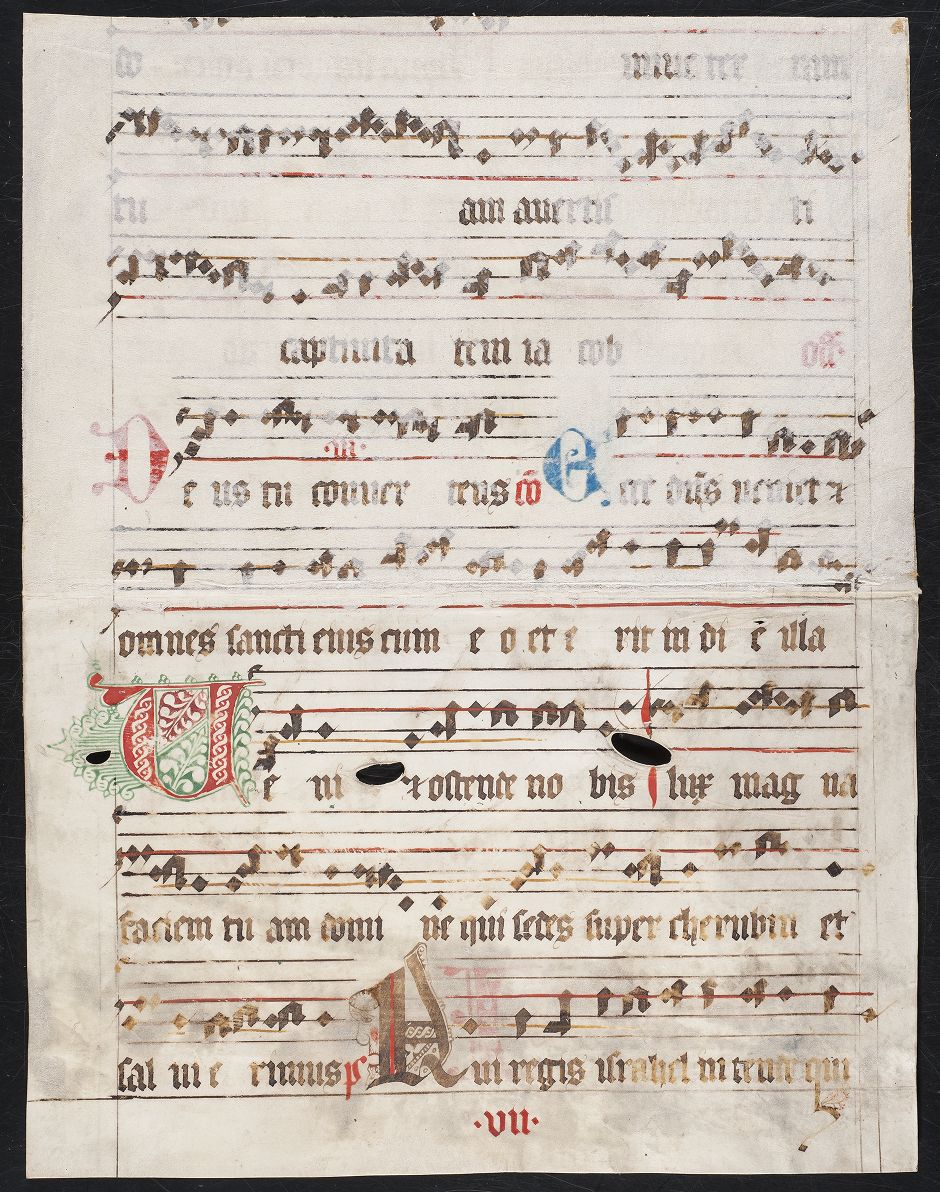 tu am auertis ti
captiuita tem ia cob off
·III·
D e us tu conuer tens cō E cce dn̄s veniet ⁊
omnes sancti eius cum e o et e rit in di ē illa
lux mag na
V e ni ⁊ ostende no bis
faciem tu am domi ne qui sedes super cherubin et
sal ui e rimus ps Q ui regis israhel in tende qui
·VII·